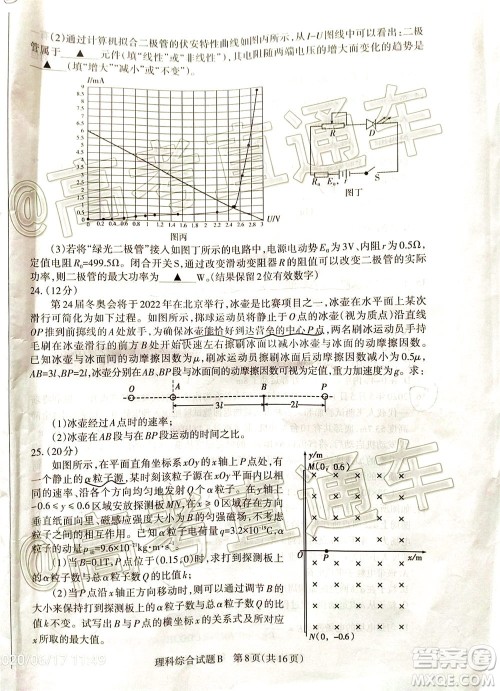 (2)通过计算机拟合二极管的伏安特性曲线如图丙所示,从I-U图线中可以看出:二极
管属于 ▲ 元件(填"线性"或"非线性"),其电阻随两端电压的增大而变化的趋势是
▲ (填"增大""减小"或"不变")。
I/mA
U/V
图丙
R
D
R₀
E₀
S
图丁
(3)若将"绿光二极管"接入如图丁所示的电路中,电源电动势E₀为3V、内阻r为0.5Ω,
定值电阻R₀=499.5Ω。闭合开关S,通过改变滑动变阻器R的阻值可以改变二极管的实际
功率,则二极管的最大功率为 ▲ W。(结果保留2位有效数字)
24.(12分)
第24届冬奥会将于2022年在北京举行,冰壶是比赛项目之一,冰壶在水平面上某次
滑行可简化为如图所示的过程:掷球运动员将静止于O点的冰壶(视为质点)沿直线
OP推到前掷线的A处放手,此后冰壶恰好到达营垒的中心P点,两名刷冰运动员手持
毛刷从冰壶滑行的前方B处开始不断刷冰面以减小冰壶与冰面间的动摩擦因数。已知
未刷冰时,冰壶与冰面间的动摩擦因数为μ,刷冰运动员擦刷冰面后动摩擦因数减小为0.5μ,
AB=3l,BP=2l,冰壶分别在AB段与BP段与冰面间的动摩擦因数可视为定值,重力加速度为g。求:
O A B P
3l 2l
(1)冰壶经过A点时的速率;
(2)冰壶在AB段与在BP段运动的时间之比。
25.(20分)
如图所示,在平面直角坐标系xOy的x轴上P点处,有
一个静止的α粒子源,某时刻该粒子源在平面内以相
同的速率,沿各个方向均匀地发射大量α粒子。在y轴上
-0.6≤y≤0.6区域安放探测板MN,y轴右侧存在
垂直纸面向里、磁感应强度大小为B的匀强磁场,不计
α粒子的重力及相互作用。α粒子电荷量q=3.2×10⁻¹⁹C,
α粒子的动量
(1)当B=0.1T,P点的坐标为(0.15,0)时,求打到探测板上的
α粒子数与总α粒子数Q的比值k;
(2)当P点沿x轴正方向移动时,可以通过调节磁场B
的大小来保持打到探测板上的α粒子数与总α粒子
数Q的比值k不变,求B的最大值。
y/m
M(0,0.6)
O
P
x/m
N(0,-0.6)
理科综合试题B 第8页(共16页)
@高考直通车